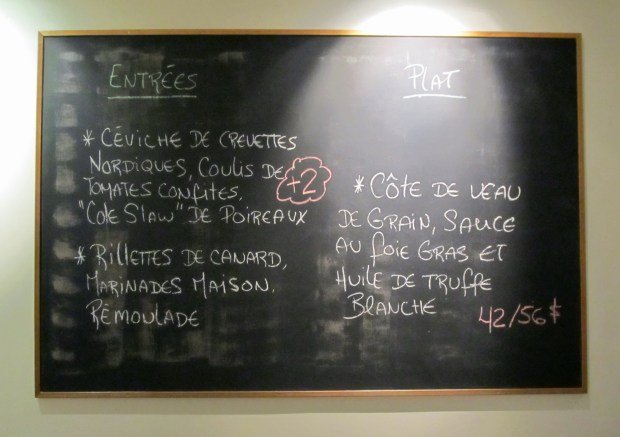 ENTRÉES
* CÉVICHE DE CREVETTES
NORDIQUES, COULIS DE
TOMATES CONFITES,
"COLE SLAW" DE POIREAUX
+2
* RILLETTES DE CANARD,
MARINADES MAISON,
RÉMOULADE
PLAT
* CÔTE DE VEAU
DE GRAIN, SAUCE
AU FOIE GRAS ET
HUILE DE TRUFFE
BLANCHE
42/56 $